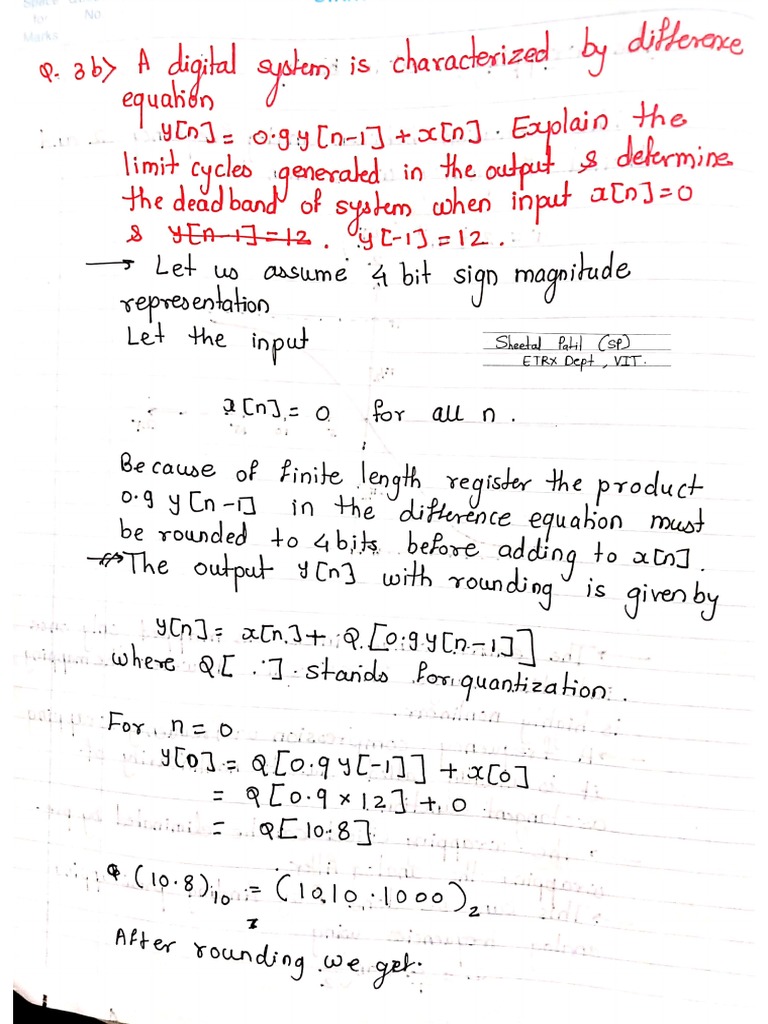 Space
for No
Marks
Q. 3b> A digital system is characterized by difference
equation
y[n] = 0.9 y[n-1] + x[n]. Explain the
limit cycles generated in the output & determine
the deadband of system when input x[n]=0
& y[n-1]=12. y[-1]=12.
→ Let us assume 4 bit sign magnitude
representation
Let the input
Sheetal Patil (SP)
ETRX Dept, VIT.
x[n] = 0 for all n.
Because of finite length register the product
0.9 y[n-1] in the difference equation must
be rounded to 4 bits before adding to x[n].
The output y[n] with rounding is given by
y[n] = x[n] + Q[0.9y[n-1]]
where Q[.] stands for quantization.
For n = 0
y[0] = Q[0.9 y[-1]] + x[0]
= Q[0.9 × 12] + 0
= Q[10.8]
(10.8)₁₀ = (1010.1000)₂
After rounding we get.